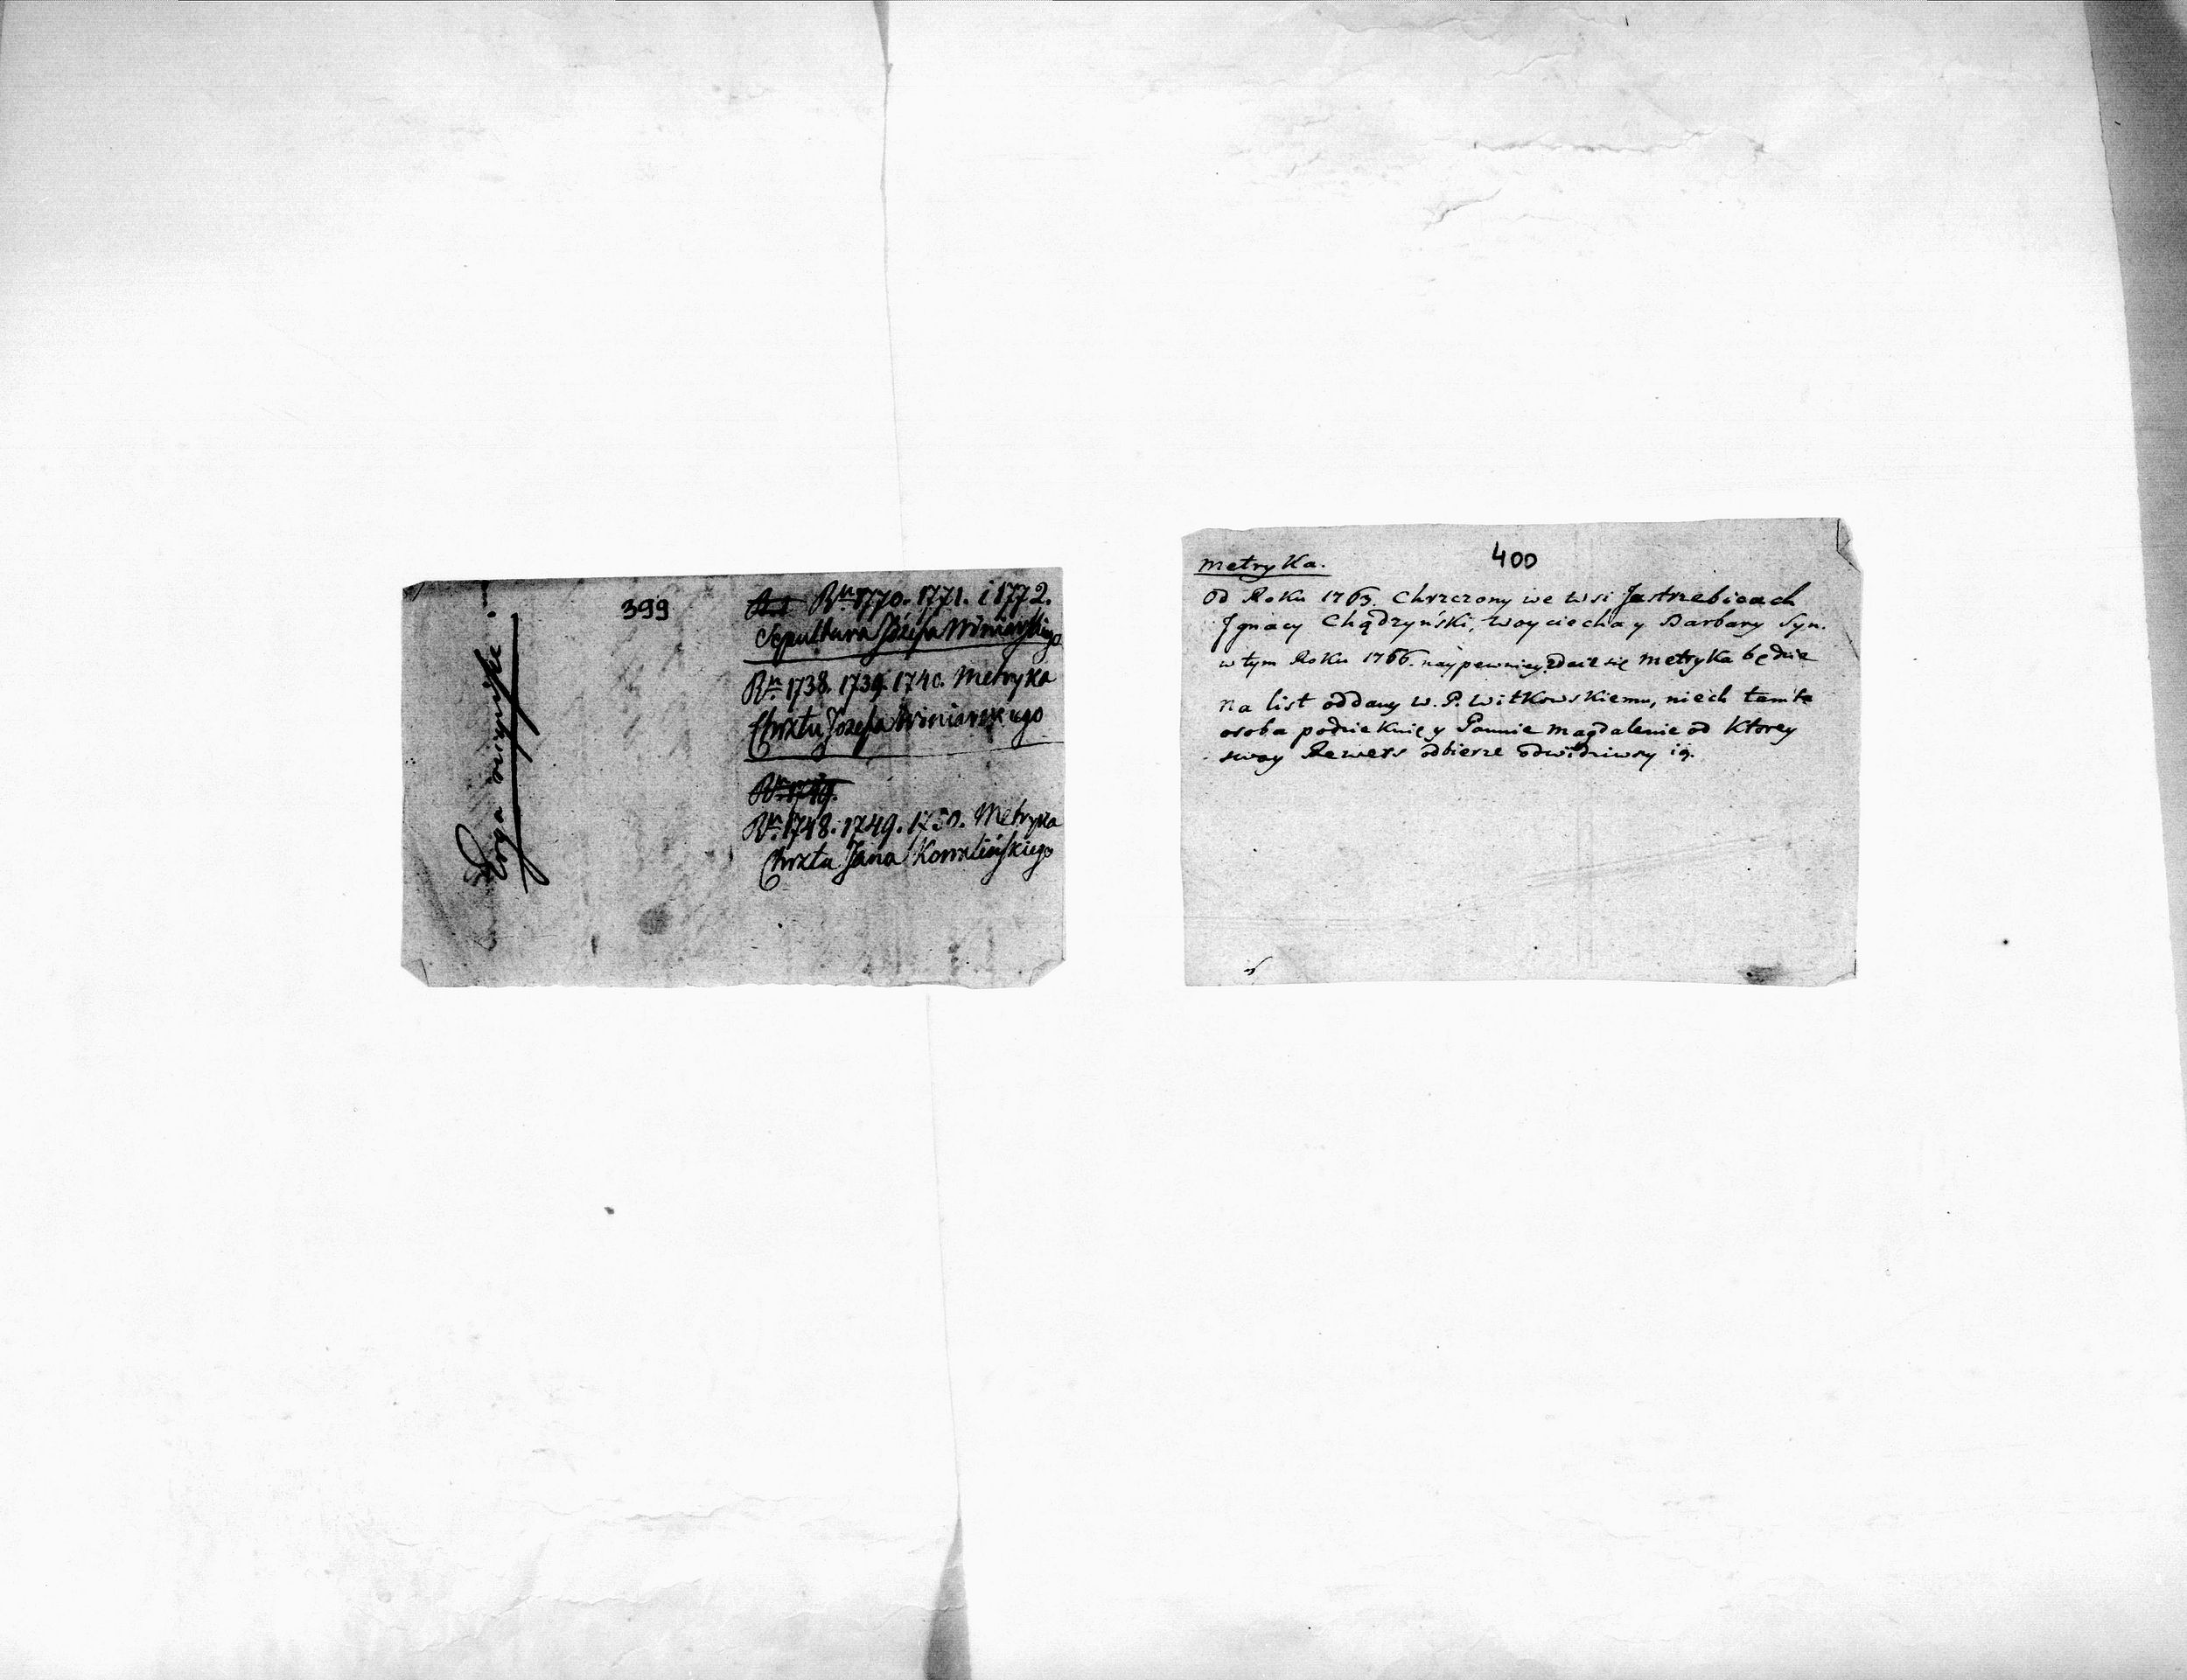 399
Rku 1770. 1771. i 1772.
Sepultura Józefa Winiarskiego
Rku 1738. 1739. 1740. Metryka
Chrztu Józefa Winiarskiego
Rku 1748. 1749. 1750. Metryka
Chrztu Jana Kowalińskiego
400
metryka.
od Roku 1763. Chrzczony we wsi Jastrzebicach
Jgnacy Chądzyński, Woyciecha y Barbary Syn.
w tym Roku 1766. naypewniey zdaie się metryka będzie
na list oddany w. P. Witkowskiemu, niech tamta
osoba podziekuię y Pannie Magdalenie od Ktorey
swoy Rewers odbierze odwidziwsy ią.